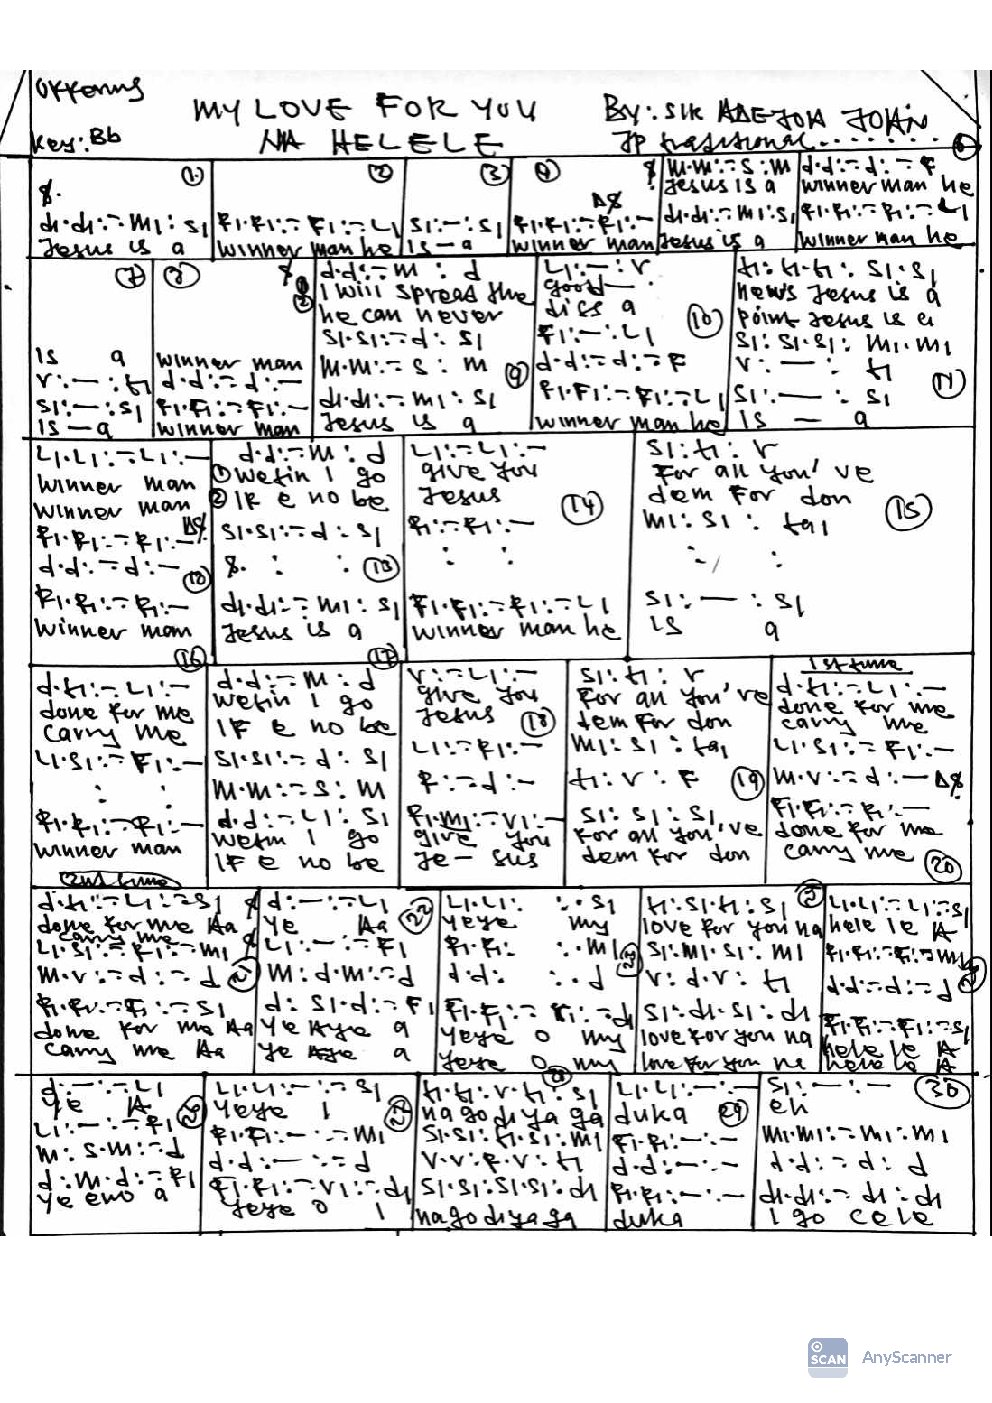 Offering
MY LOVE FOR YOU
NA HELELE
Key: Bb
By: SIR ADEJOH JOHN
JP traditional........
1
d1.d1:-:M1:S1
Jesus is a
2
F1.F1:-:F1:-:L1
winner man he
3
S1:-:S1
is — a
4
D$
F1.F1:-:F1:-
winner man
M.M:-:S:M
Jesus is a
d1.d1:-:M1:S1
Jesus is a
d.d:-:d:-:F
winner man he
F1.F1:-:F1:-:L1
winner man he
7
is a
r:—:t1
S1:—:S1
is — a
8
winner man
d.d:-:d:-
F1.F1:-:F1:-
winner man
d.d:-:M:d
I will spread the
he can never
S1.S1:-:d:S1
M.M:-:S:M
9
d1.d1:-:M1:S1
Jesus is a
L1:—:r
good—
dies a
F1:—:L1
10
d.d:-:d:-:F
F1.F1:-:F1:-:L1
winner man he
t1:t1.t1:S1.S1
news Jesus is a
point Jesus is a
S1:S1.S1:M1.M1
r:—:t1
11
S1:—:S1
is — a
L1.L1:-:L1:-
winner man
winner man
F1.F1:-:F1:-
D$
d.d:-:d:-
F1.F1:-:F1:-
winner man
d.d:-:M:d
1 wetin I go
2 IF e no be
S1.S1:-:d:S1
$. : : 13
d1.d1:-:M1:S1
Jesus is a
L1:-:L1:-
give you
Jesus
14
F1:-:F1:-
F1.F1:-:F1:-:L1
winner man he
S1:t1:r
For all you've
dem For don
M1:S1:ta1
15
S1:—:S1
is a
16
d.t1:-:L1:-
done for me
carry me
L1.S1:-:F1:-
F1.F1:-:F1:-
winner man
17
d.d:-:M:d
wetin I go
IF e no be
S1.S1:-:d:S1
M.M:-:S:M
d.d:-:L1:S1
wetin I go
IF e no be
r:-:L1:-
give you
Jesus
18
L1:-:F1:-
F:-:d:-
give you
Je-sus
S1:t1:r
For all you've
dem For don
M1:S1:ta1
t1:r:F
19
S1:S1:S1
For all you've
dem for don
1st time
d.t1:-:L1:-
done for me
carry me
L1.S1:-:F1:-
M.r:-:d:- D$
F1.F1:-:F1:-
done for me
carry me
20
2nd time
d.t1:-:L1:-:S1
done for me Aa
carry me
L1.S1:-:F1:-:M1
M.r:-:d:-:d
21
F1.F1:-:F1:-:S1
done for me Aa
carry me Aa
d:—:-:L1
22
ye Aa
L1:—:-:F1
M:d.M:-:d
d:S1.d:-:F1
ye Aye a
ye Aye a
L1.L1: :.S1
yeye my
F1.F1: :.M1
23
d.d: :.d
yeye O my
yeye O my
t1:S1.t1:S1
love for you na
S1:M1.S1:M1
r:d.r:t1
S1:d1.S1:d1
love for you na
love for you na
L1.L1:-:L1:-:S1
hele le A
F1.F1:-:F1:-:M1
d.d:-:d:-:d
F1.F1:-:F1:-:S1
hele le A
hele le A
d:—:-:L1
ye A
26
L1:—:-:F1
M:S.M:-:d
d:M.d:-:F1
ye ewo a
L1.L1:—:-:S1
yeye I
27
F1.F1:—:-:M1
d.d:—:-:d
yeye O I
28
t1.t1:r.t1:S1
nagodiyaga
S1.S1:t1.S1:M1
r.r:F.r:t1
S1.S1:S1.S1:d1
nagodiyaga
L1.L1:—:-
duka
29
F1.F1:—:-
d.d:—:-
F1.F1:—:-
duka
30
S1:—:-
eh
M1.M1:-:M1:M1
d.d:-:d:d
d1.d1:-:d1:d1
I go cele
SCAN
AnyScanner